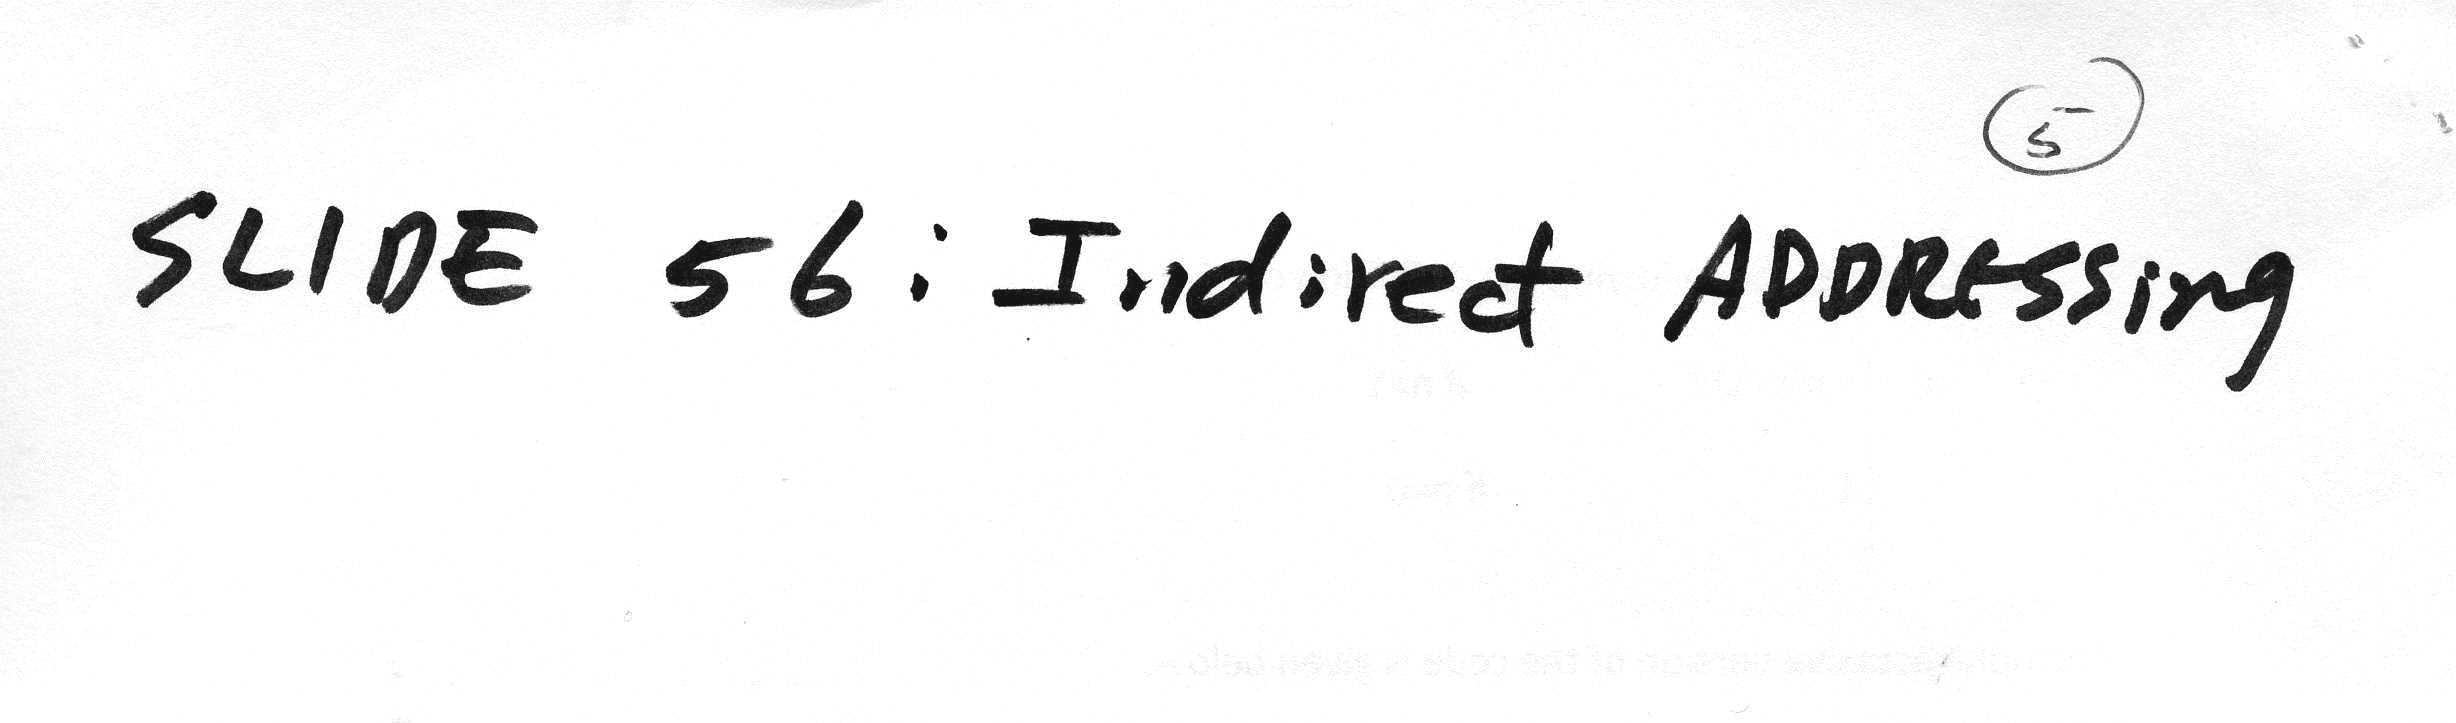 5
SLIDE 56: Indirect ADDRESSing